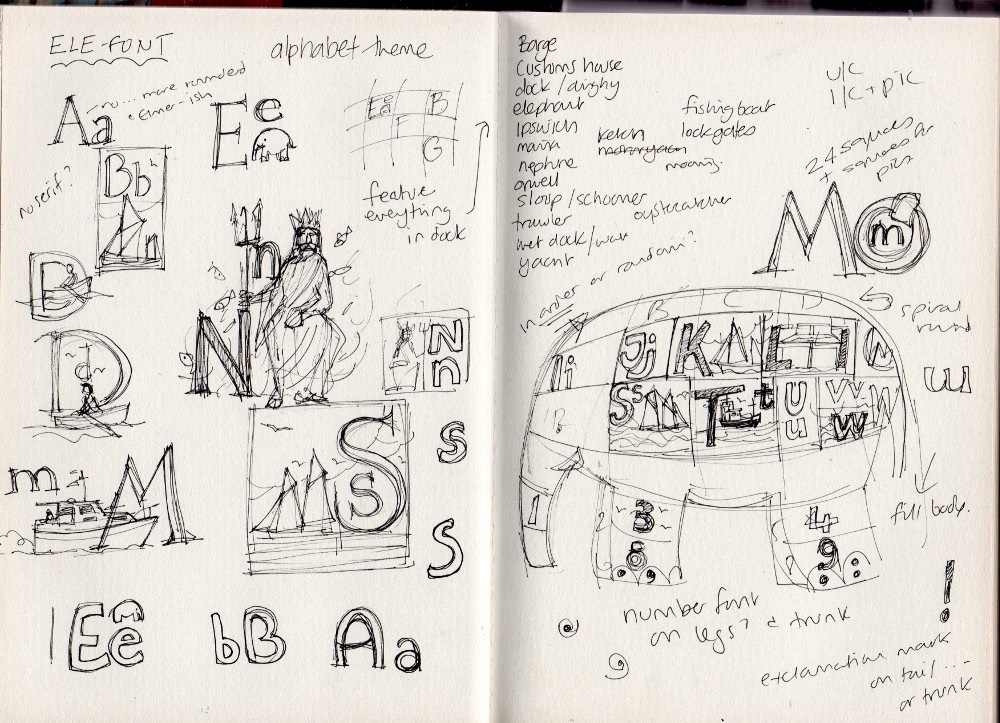 ELE-FONT
alphabet theme
no... more rounded
Aa
E e
Ee B
F
G
no serif?
Bb
n
feature
everything
in dock
D
n
N
N
n
D
d
S
s
s
m M
S
Ee
bB
Aa
Barge
Customs house
dock / dinghy
elephant
Ipswich
marina
neptune
orwell
sloop / schooner
trawler
wet dock /
yacht
ketch
fishing boat
lock gates
oystercatcher
in order or random?
u/c
l/c + pic
24 squares
+ squares for
pics
M m
spiral
round
B C D
Ii Jj K L M
Ss Tt U u V v W w
w
fill body.
1 2 3 4
8 9
number font
on legs? & trunk
!
exclamation mark
on tail...
or trunk